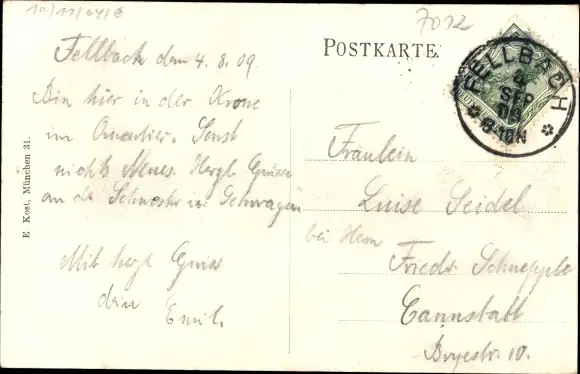 10/11/04/8
7012
Fellbach den 4. 8. 09.
Bin hier in der Krone
im Quartier. Sonst
nichts Neues. Herzl Grüsse
an die Schwester u.
Mit herzl Gruss
dein
Emil.
E. Kost, München 31.
POSTKARTE.
FELLBACH
4
SEP
09
8-10N
Fräulein
Luise Seidel
bei Herrn
Friedr. Schnepple
Cannstatt
10.